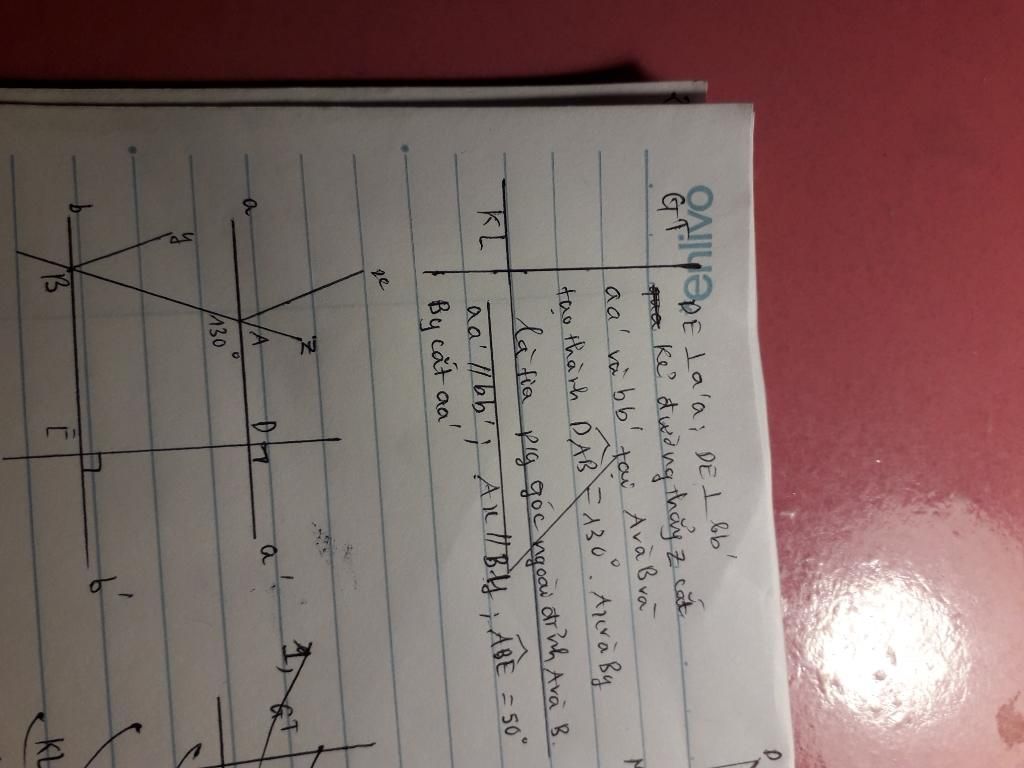 enlivo
GT
DE ⊥ a'a; DE ⊥ bb'
Kẻ đường thẳg z cắt
aa' và bb' tại A và B và
tạo thành DAB = 130°. Ax và By
là tia p/g góc ngoài đỉnh A và B.
KL
aa' // bb'; Ax // By; ABE = 50°
By cắt aa'
x
z
y
a
A
D
a'
130°
b
B
E
b'
GT
KL